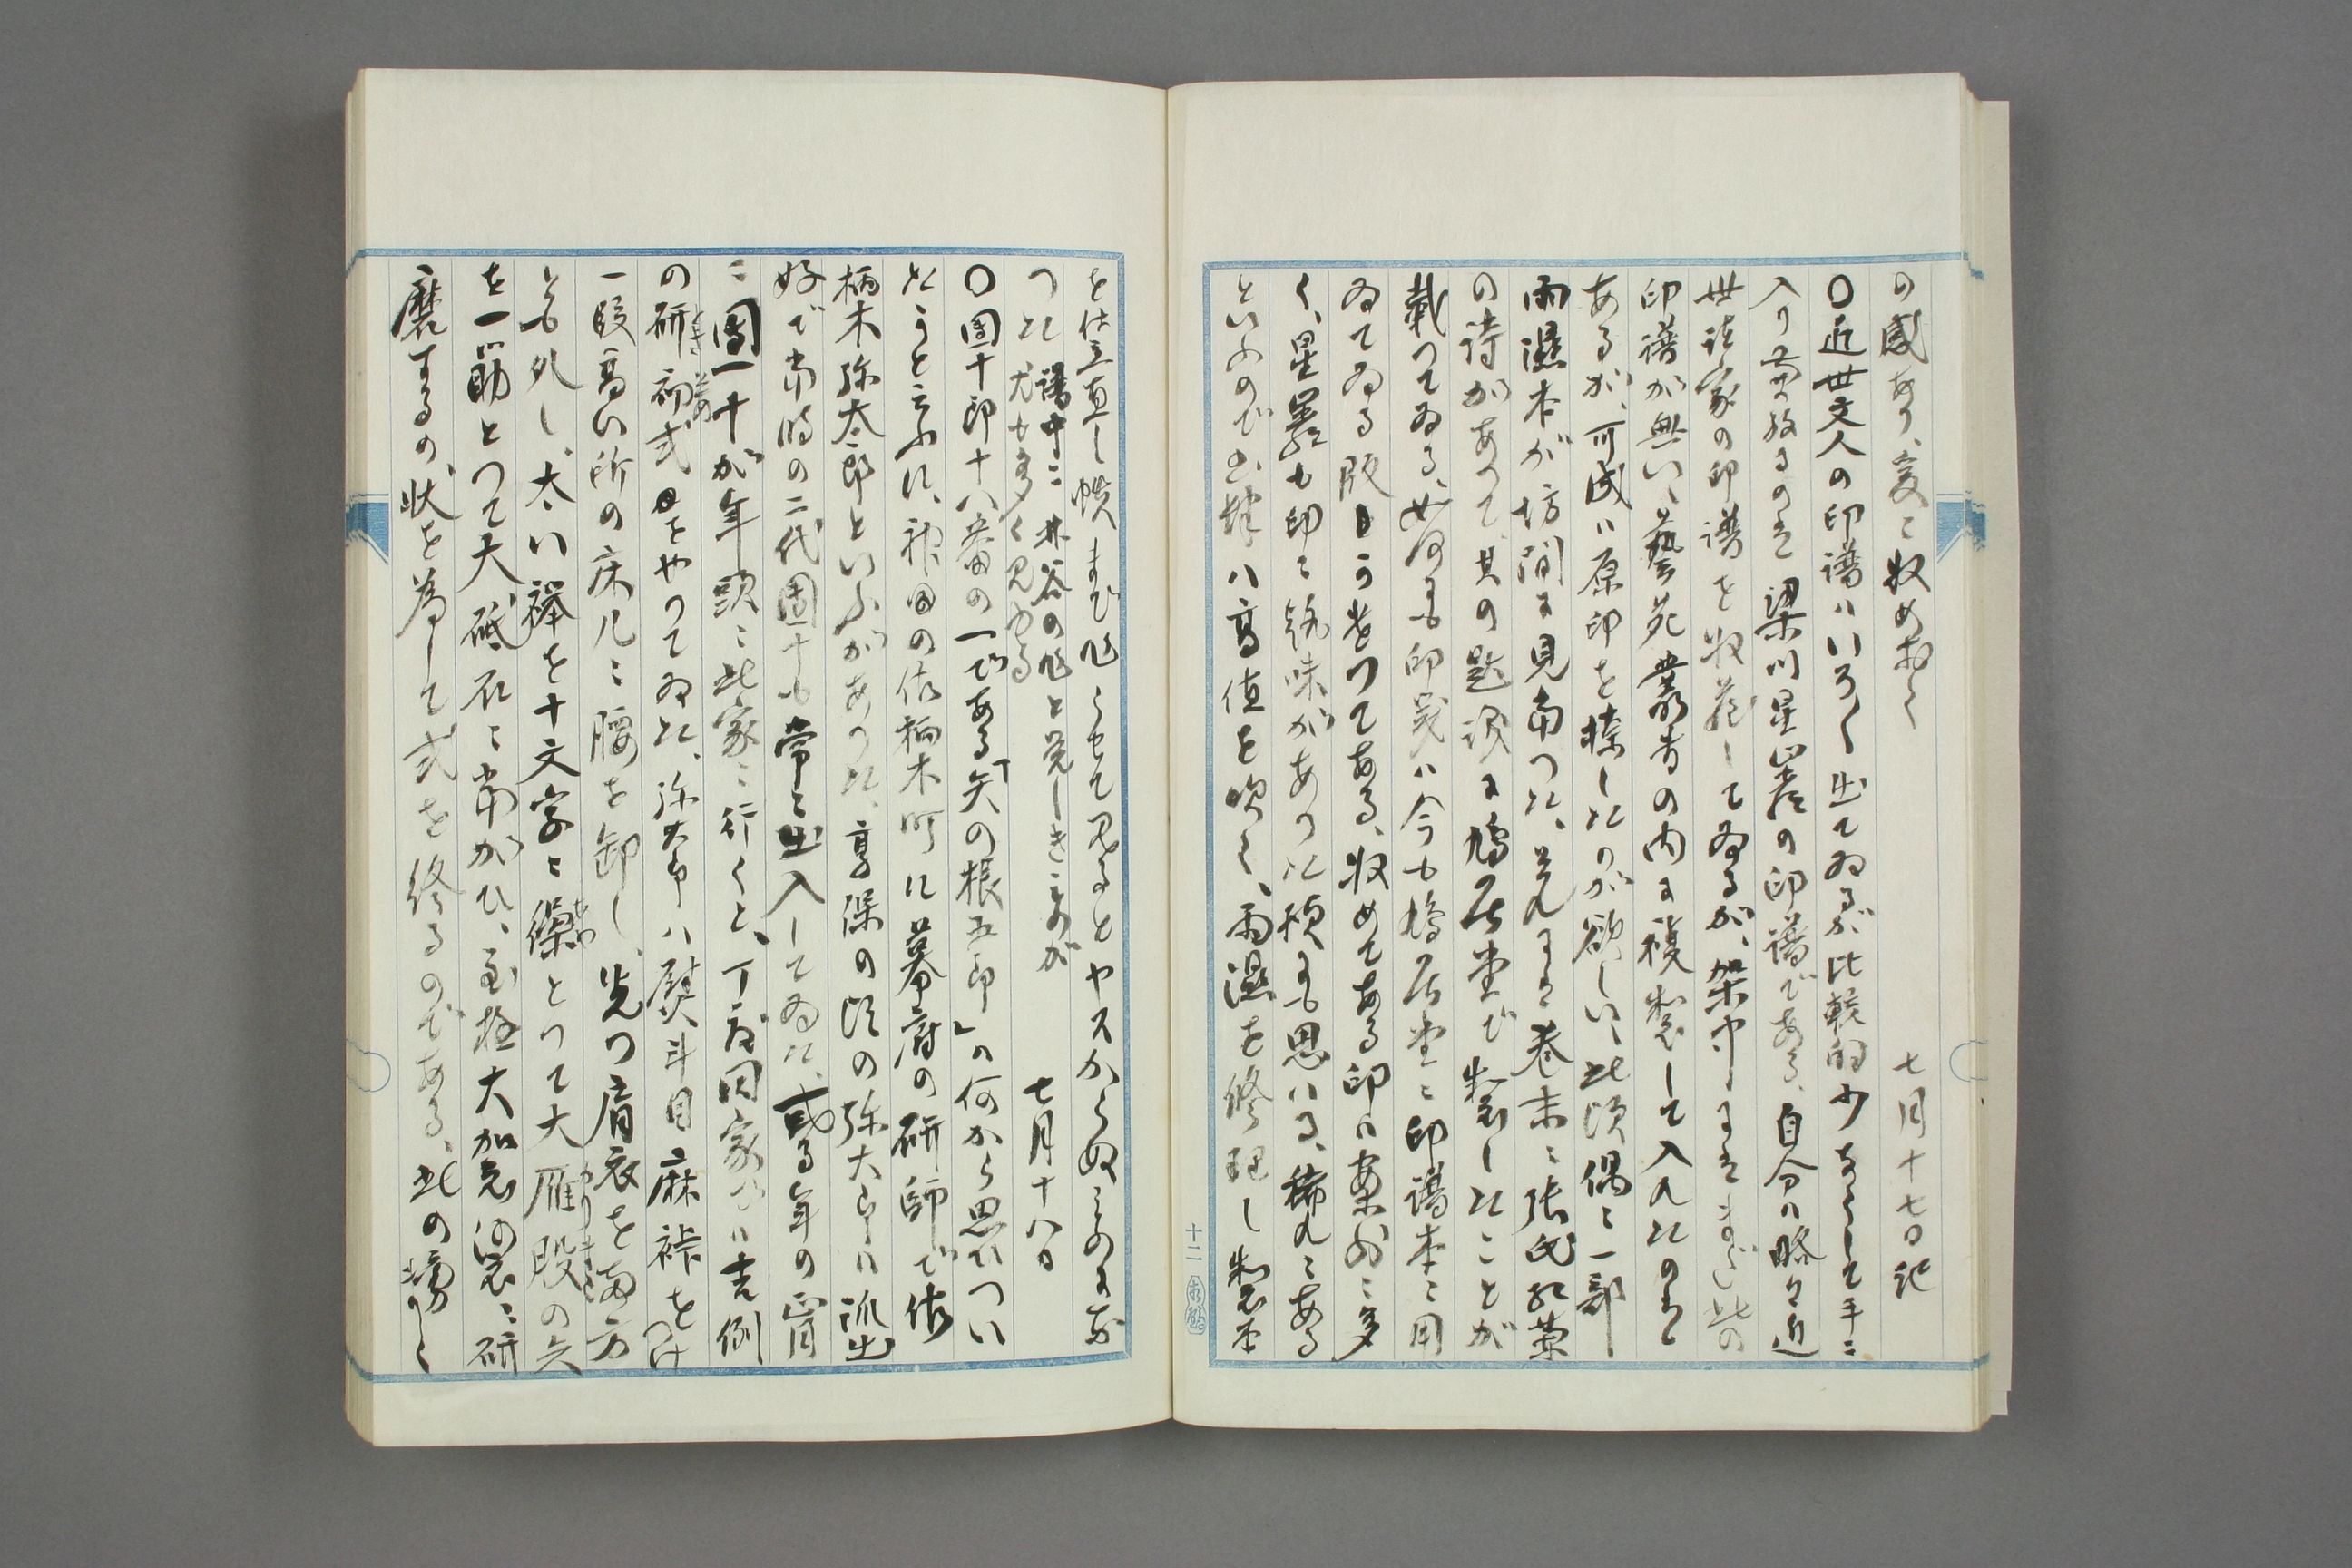 の感あり、爰に收めおく　七月十七日記
〇近世文人の印譜ハいろ〳〵出てゐるが比較的少なくして手ニ
入り兼ねるのは梁川星巖の印譜である、自分ハ略々近
世諸家の印譜を收藏してゐるが、架中にはまだ此の
印譜が無い、藝苑叢書の内に複製して入れたのは
あるが、可成ハ原印を捺したのが欲しい、此頃偶ニ一部
雨濕本が坊間に見当つた、それには巻末ニ張氏紅蘭
の詩があつて、其の題識に鳩居堂で製したことが
載つてゐる、如何にも印影ハ今も鳩居堂ニ印譜本ニ用
ゐてゐる版しを使つてある、收めてある印ハ案外ニ多
く、星巖も印ニ趣味があつた様にも思ハる、稀れニある
といふので書肆ハ高値を吹く、雨濕を修理し製本
を仕立直し幞
つた
〇団十郎十八番の一である「矢の根五郎」の何から思ひつい
たかと云ふに、神田の佐柄木町に幕府の研師で佐
柄木弥太郎といふがあつた、享保の頃の弥太郎ハ派出
好で当時の二代団十も常に出入してゐた、或る年の正月
ニ団十が年頭ニ此家ニ行くと、丁度同家でハ吉例
の研初式をやつてゐた、弥太郎ハ熨斗目麻裃をつけ
一段高い所の床几ニ腰を卸し、先つ肩衣を両方
とも外し、太い襷を十文字に〓とつて大雁股の矢
を一筋とつて大砥石ニ当がひ、至極大加減ニ研
磨するの状を為して式を終るのである、此の勢りし
譜中ニ
尤も多く見ゆる
七月十八日
十二